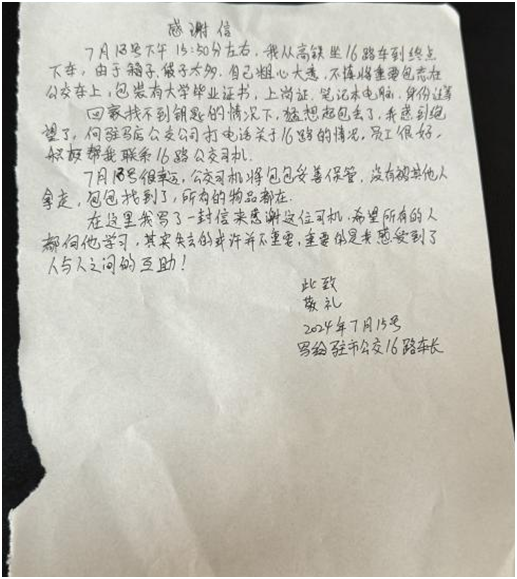 感谢信
7月13号下午15:30分左右，我从高铁坐16路车到终点
下车，由于箱子、袋子太多，自己粗心大意，不慎将重要包忘在
公交车上，包装有大学毕业证书，上岗证，笔记本电脑，身份证等
回家找不到钥匙的情况下，猛想起包丢了，我感到绝
望了，向驻马店公交公司打电话关于16路的情况，员工很好，
积极帮我联系16路公交司机.
7月13号很幸运，公交司机将包包妥善保管，没有被其他人
拿走，包包找到了，所有的物品都在.
在这里我写了一封信来感谢这位司机，希望所有的人
都向他学习，其实失去的或许并不重要，重要的是我感受到了
人与人之间的互助！
此致
敬礼
2024年7月15号
写给驻市公交16路车长